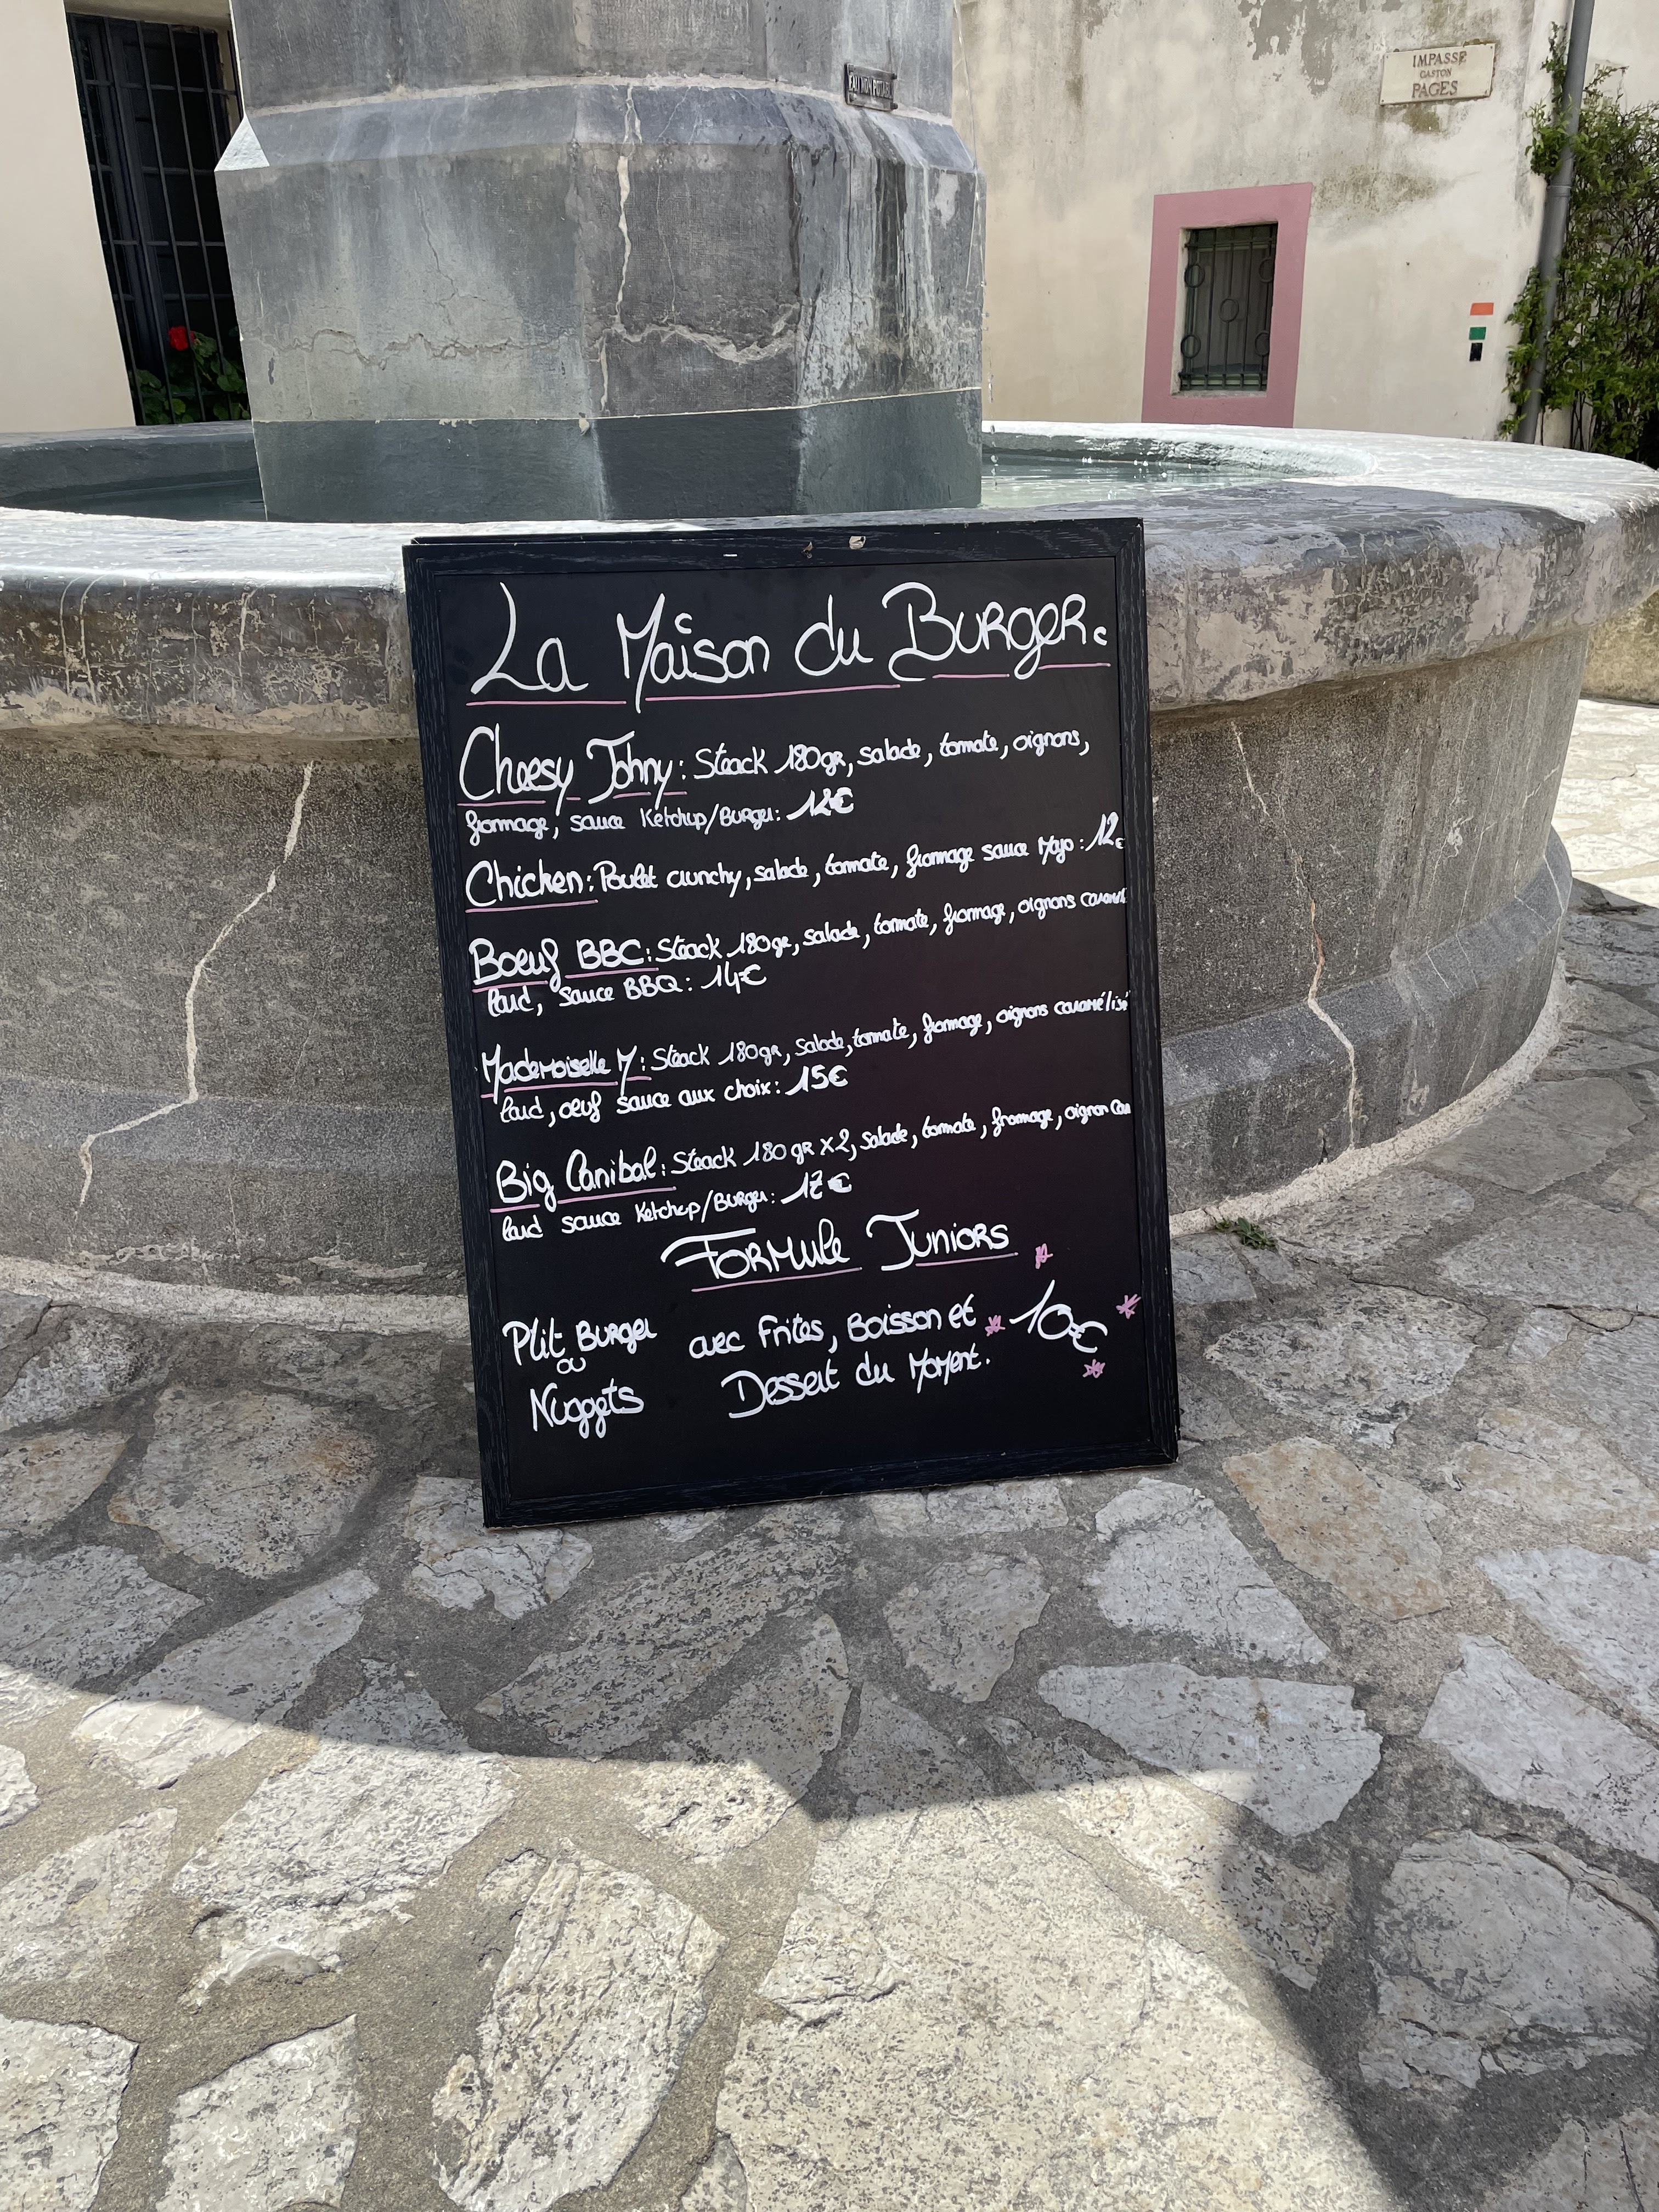 EAU NON POTABLE
IMPASSE
GASTON
PAGES
La Maison du Burger
Cheesy Johny : Steack 180gr, salade, tomate, oignons,
fromage, sauce Ketchup/Burger : 12€
Chicken : Poulet crunchy, salade, tomate, fromage sauce Mayo : 12€
Boeuf BBC : Steack 180gr, salade, tomate, fromage, oignons
lard, sauce BBQ : 14€
Mademoiselle M : Steack 180gr, salade, tomate, fromage, oignons caramélisé
lard, oeuf sauce aux choix : 15€
Big Canibal : Steack 180 gr x2, salade, tomate, fromage, oignon
lard sauce Ketchup/Burger : 17€
Formule Juniors
Ptit Burger avec Frites, Boisson et 10€
ou
Nuggets Dessert du Moment.